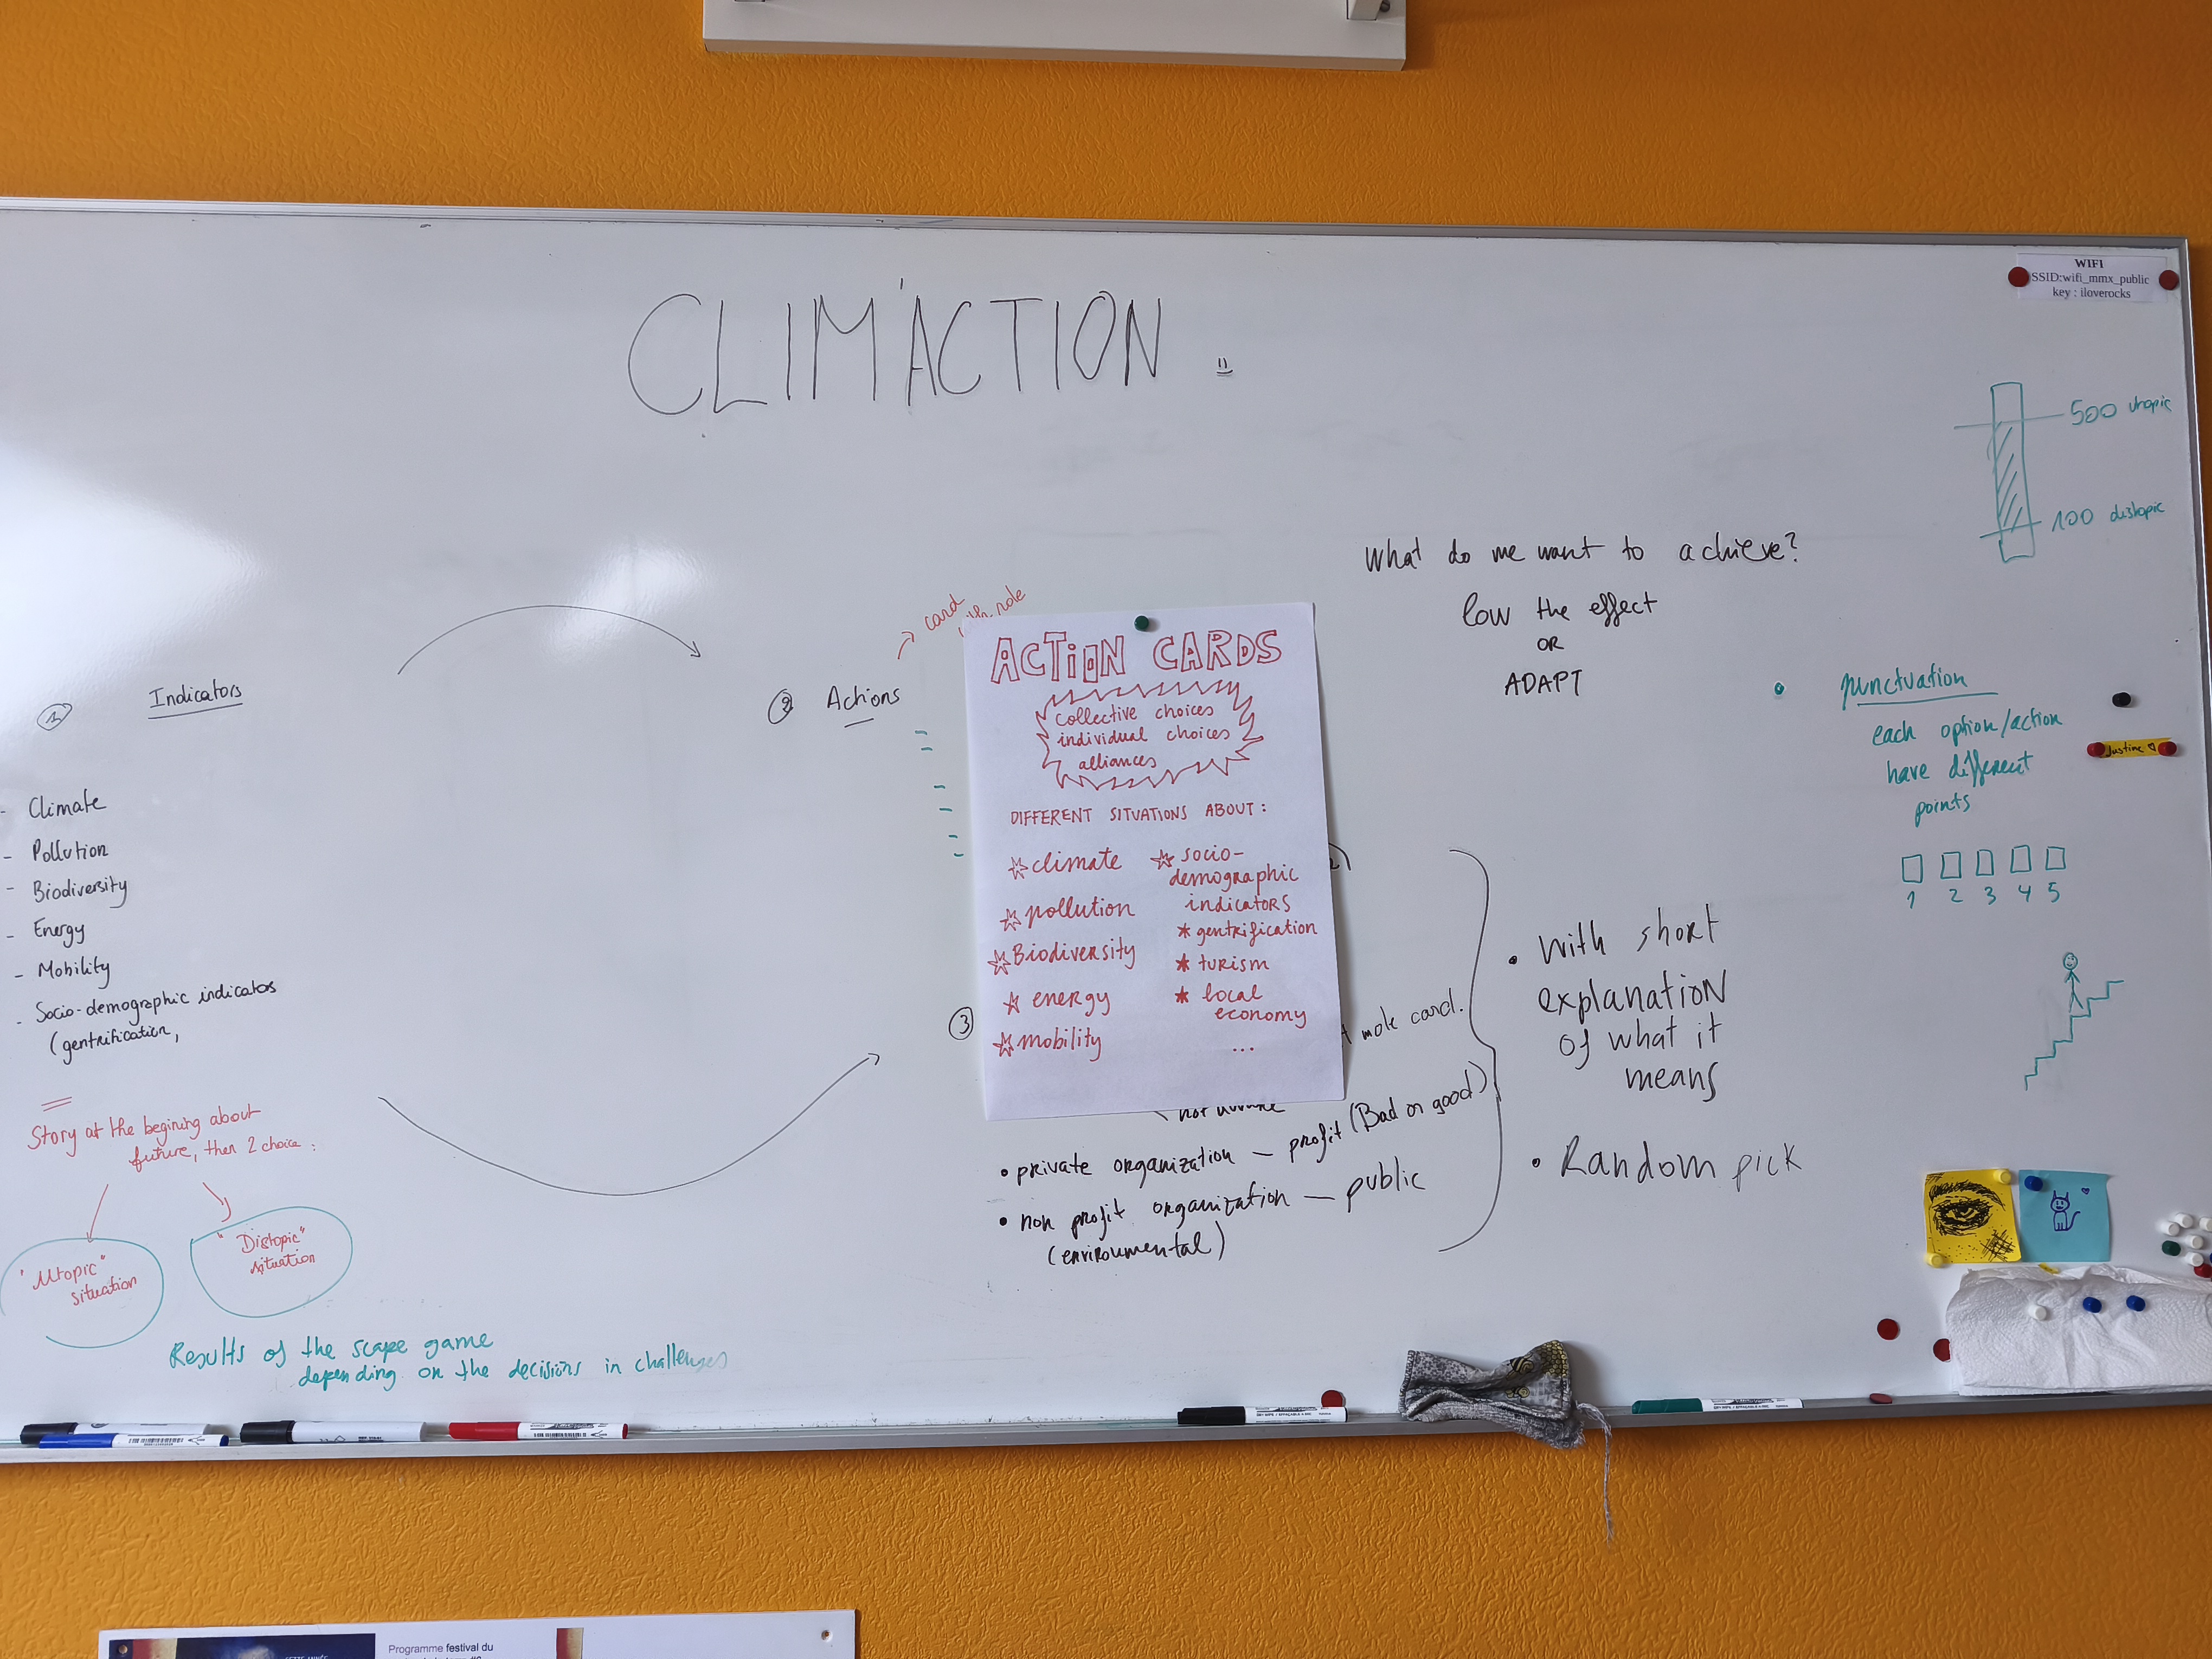 CLIM'ACTION
WIFI
SSID:wifi_mmx_public
key : iloverocks
500 utopic
100 distopic
What do we want to achieve?
low the effect
OR
ADAPT
1 Indicators
- Climate
- Pollution
- Biodiversity
- Energy
- Mobility
- Socio-demographic indicators
(gentrification,
Story at the begining about
future, then 2 choice :
"Utopic"
situation
"Distopic"
situation
Results of the scape game
depending on the decisions in challenges
2 Actions
card
role
ACTION CARDS
collective choices
individual choices
alliances
DIFFERENT SITUATIONS ABOUT :
climate
pollution
Biodiversity
energy
mobility
socio-
demographic
indicators
* gentrification
* turism
* local
economy
...
3
card.
not
• private organization – profit (Bad or good)
• non profit organization – public
(environmental)
• With short
explanation
of what it
means
• Random pick
• punctuation
each option/action
have different
points
1 2 3 4 5
Justine
Programme festival du